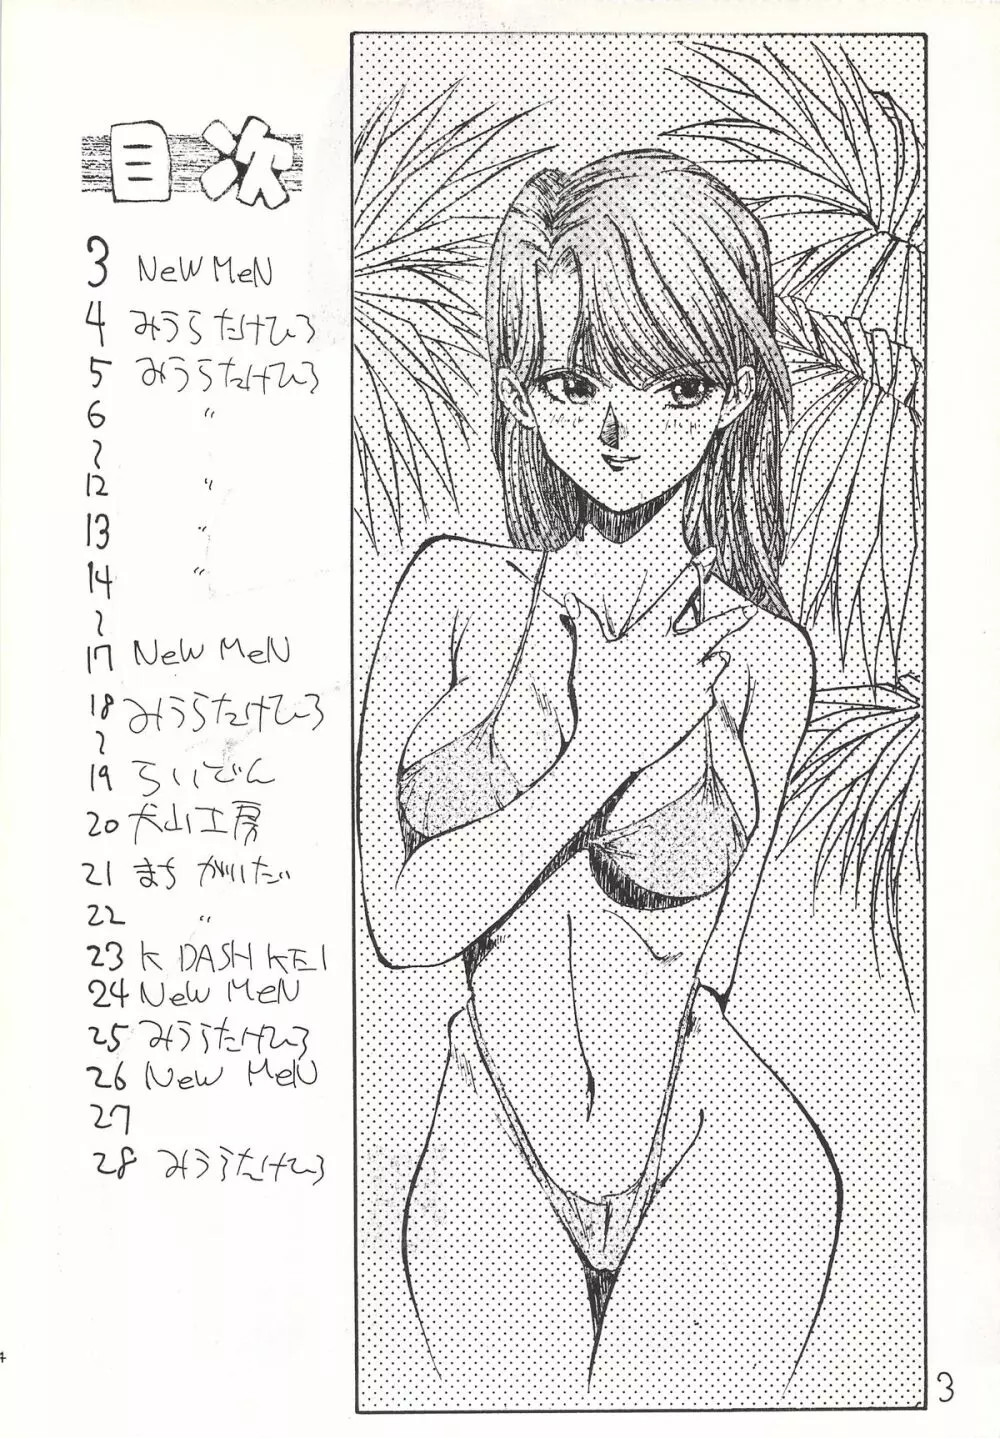 目次
3 NeW MeN
4 みうらたけひろ
5 みうらたけひろ
6 〃
〜
12 〃
13 〃
14 〃
〜
17 NeW MeN
18 みうらたけひろ
〜
19 らいでん
20 犬山工房
21 まちがいだ
22 〃
23 K DASH KEI
24 NeW MeN
25 みうらたけひろ
26 NeW MeN
27
28 みうらたけひろ
3